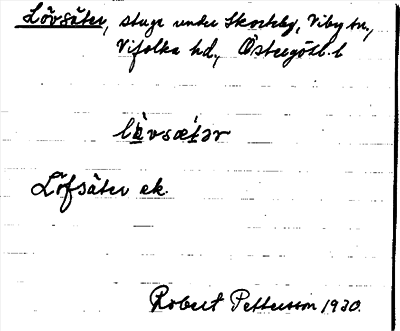 Lövsäter, stuga under Skorteby, Viby sn,
Vifolka hd, Östergötl. l
lövsætər
Löfsäter ek.
Robert Pettersson 1930.